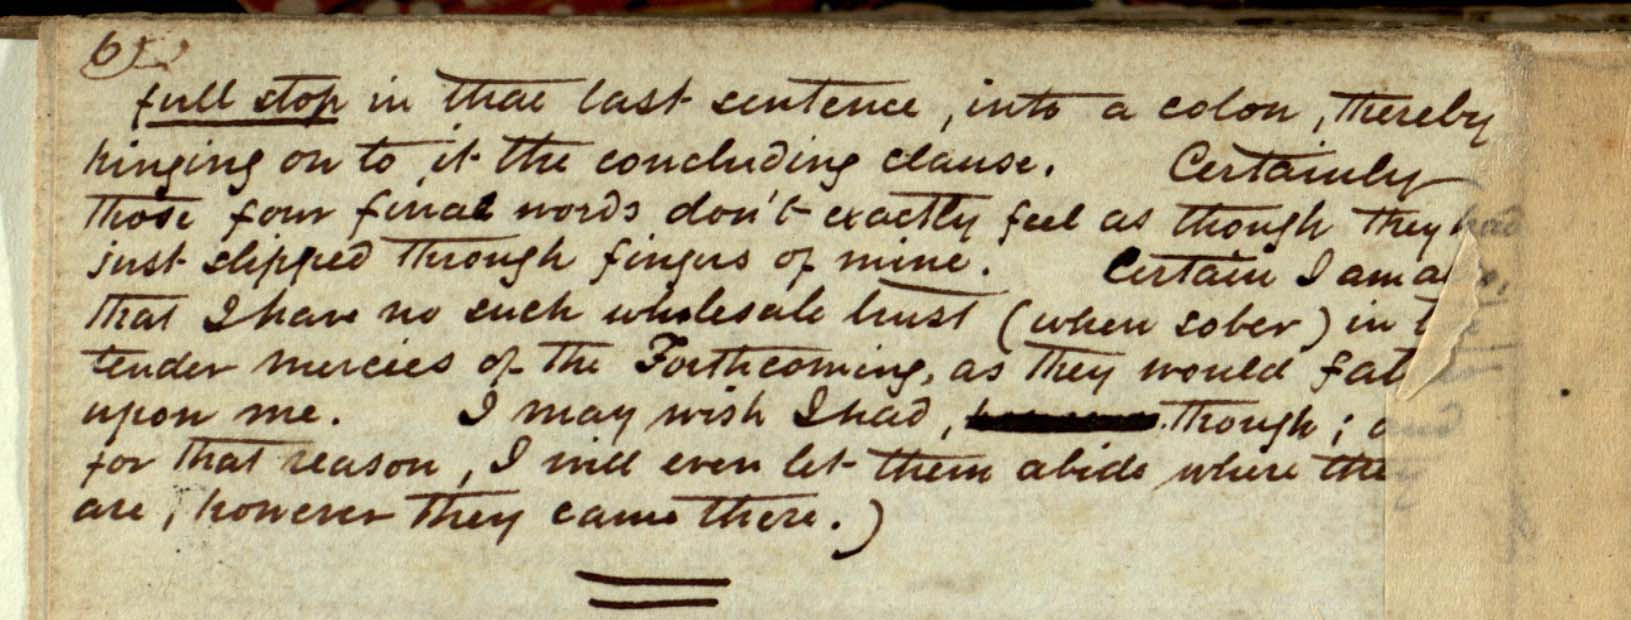 6
full stop in that last sentence, into a colon, thereby
hinging on to it the concluding clause. Certainly
those four final words don't exactly feel as though they had
just slipped through fingers of mine. Certain I am
that I have no such wholesale trust (when sober) in
tender mercies of the Forthcoming, as they would
upon me. I may wish I had, though;
for that reason, I will even let them abide where
are, however they came there.)